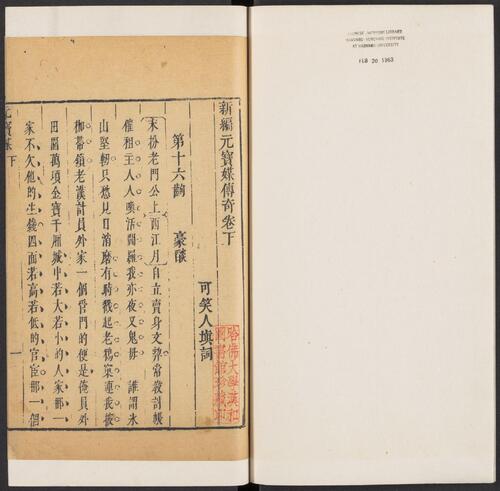 CHINESE-JAPANESE LIBRARY
HARVARD-YENCHING INSTITUTE
AT HARVARD UNIVERSITY
FEB 20 1963
新編元寶媒傳奇卷下
可笑人填詞
哈佛大學漢和
圖書館珍藏印
第十六齣 豪醼
末扮老門公上西江月自立賣身文券常發討賬
催租主人人喚活閻羅我亦夜叉鬼母 誰謂氷
山堅韌只愁見日消磨有時戳起老鴉窠連我
枷帶鎖老漢計員外家一個管門的便是俺員外
田園萬頃金寶千廂城中若大若小的人家那一
家不欠他的生錢四面若高若低的官宦那一個
元寶媒 下
一